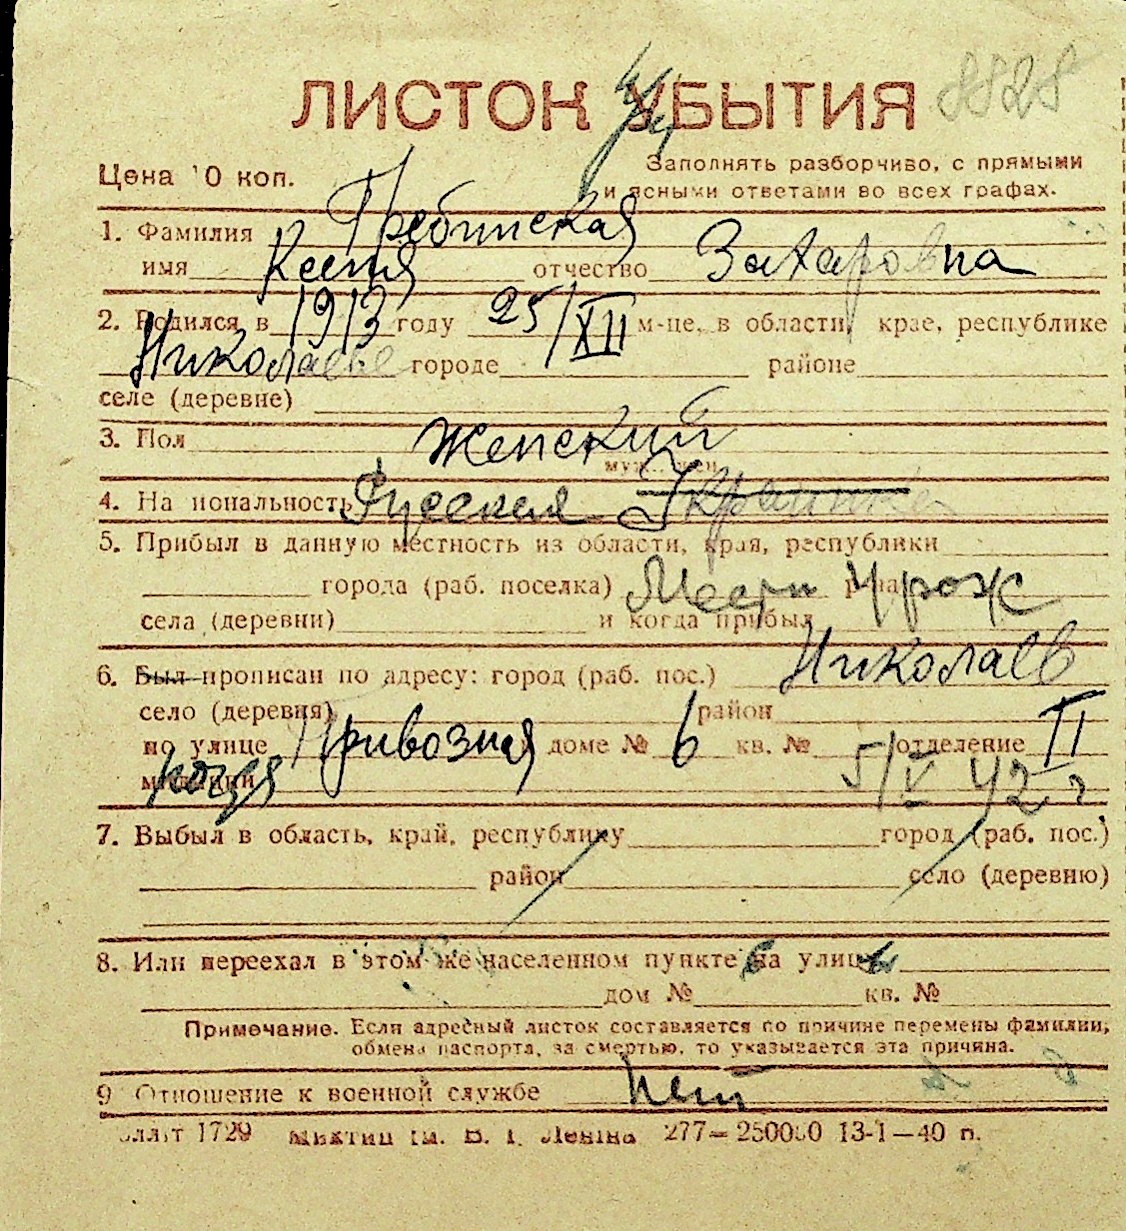 ЛИСТОК УБЫТИЯ 8828
Цена 10 коп. Заполнять разборчиво, с прямыми
и ясными ответами во всех графах.
1. Фамилия Гребинская
имя Ксения отчество Захаровна
2. Родился в 1913 году 25/XII м-це, в области, крае, республике
Николаеве городе районе
селе (деревне)
3. Пол Женский
муж., жен.
4. Национальность Русская Украинка
5. Прибыл в данную местность из области, края, республики
города (раб. поселка) Местн района Урож
села (деревни) и когда прибыл
6. Был прописан по адресу: город (раб. пос.) Николаев
село (деревня) район
по улице Привозная доме № 6 кв. № отделение II
милиции когда 5/V 42 г
7. Выбыл в область, край, республику город (раб. пос.)
район село (деревню)
8. Или переехал в этом же населенном пункте на улицу
дом № кв. №
Примечание. Если адресный листок составляется по причине перемены фамилии,
обмена паспорта, за смертью, то указывается эта причина.
9 Отношение к военной службе Нет
1729 В. І. Леніна 277—250000 13-1—40 п.